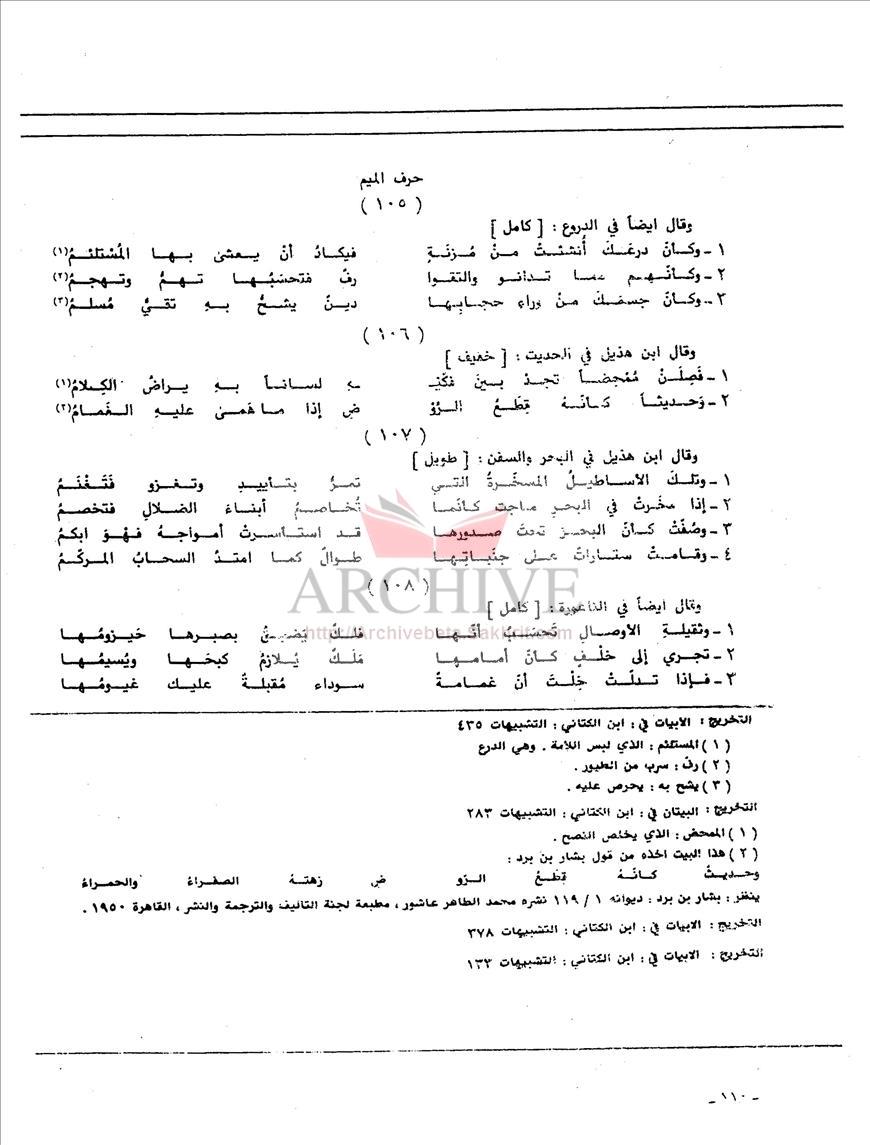 حرف الميم
( ١٠٥ )
وقال ايضاً في الدروع : [ كامل ]
١ - وكأن درعَكَ أُنشئتْ منْ مُزنَةٍ فيكادُ أنْ يعشى بها المُسْتلئمُ(١)
٢ - وكأنّهم لما تدانو والتقوا رفّ فتحسَبُها تهمُّ وتهجمُ(٢)
٣ - وكأنّ جسمَكَ منْ وراءِ حجابِها دينٌ يشحُّ بهِ تقيٌّ مُسلمُ(٣)
( ١٠٦ )
وقال ابن هذيل في الحديث : [ خفيف ]
١ - فَصِلَنْ مُمْحِضاً تجدْ بينَ فكّيْـ ـهِ لساناً بهِ يراضُ الكِلامُ(١)
٢ - وَحديثاً كأنّهُ قِطَعُ الرّوْ ضِ إذا ما هَمَى عليهِ الغَمامُ(٢)
( ١٠٧ )
وقال ابن هذيل في البحر والسفن : [ طويل ]
١ - وتلكَ الأساطيلُ المسخّرةُ التي تمرُّ بتأييدٍ وتغزو فَتَغْنَمُ
٢ - إذا مخَرتْ في البحرِ ماجت كأنّما تُخاصمُ أبناءَ الضلالِ فتخصمُ
٣ - وصُفّتْ كأنّ البحرَ تحتَ صدورِها قد استأسرتْ أمواجهُ فهْوَ ابكمُ
٤ - وقامتْ ستاراتٌ على جنَباتِها طوالٌ كما امتدّ السحابُ المركّمُ
( ١٠٨ )
وقال أيضاً في الناعورة : [ كامل ]
١ - وثقيلةِ الأوصالِ تَحسَبُ أنّها فلكٌ يَضيقُ بصبرِها حَيزومُها
٢ - تجري إلى خلْفٍ كأنّ أمامَها مَلَكٌ يُلازمُ كبحَها ويُسيمُها
٣ - فإذا تدلّتْ خِلْتَ أنّ غمامةً سوداءَ مُقبلةٌ عليك غيومُها
التخريج : الابيات في : ابن الكتاني : التشبيهات ٤٣٥
( ١ ) المستلئم : الذي لبس اللأمة . وهي الدرع
( ٢ ) رف : سرب من الطيور .
( ٣ ) يشح به : يحرص عليه .
التخريج : البيتان في : ابن الكتاني : التشبيهات ٢٨٣
( ١ ) الممحض : الذي يخلص النصح .
( ٢ ) هذا البيت اخذه من قول بشار بن برد :
وحديثٌ كأنّهُ قِطَعُ الرو ضِ زهتهُ الصفراءُ والحمراءُ
ينظر : بشار بن برد : ديوانه ١ / ١١٩ نشره محمد الطاهر عاشور ، مطبعة لجنة التاليف والترجمة والنشر ، القاهرة ١٩٥٠ .
التخريج : الابيات في : ابن الكتاني : التشبيهات ٣٧٨
التخريج : الابيات في : ابن الكتاني : التشبيهات ١٣٣
ARCHIVE
http://Archivebeta.Sakhrit.com
- ١١٠ -